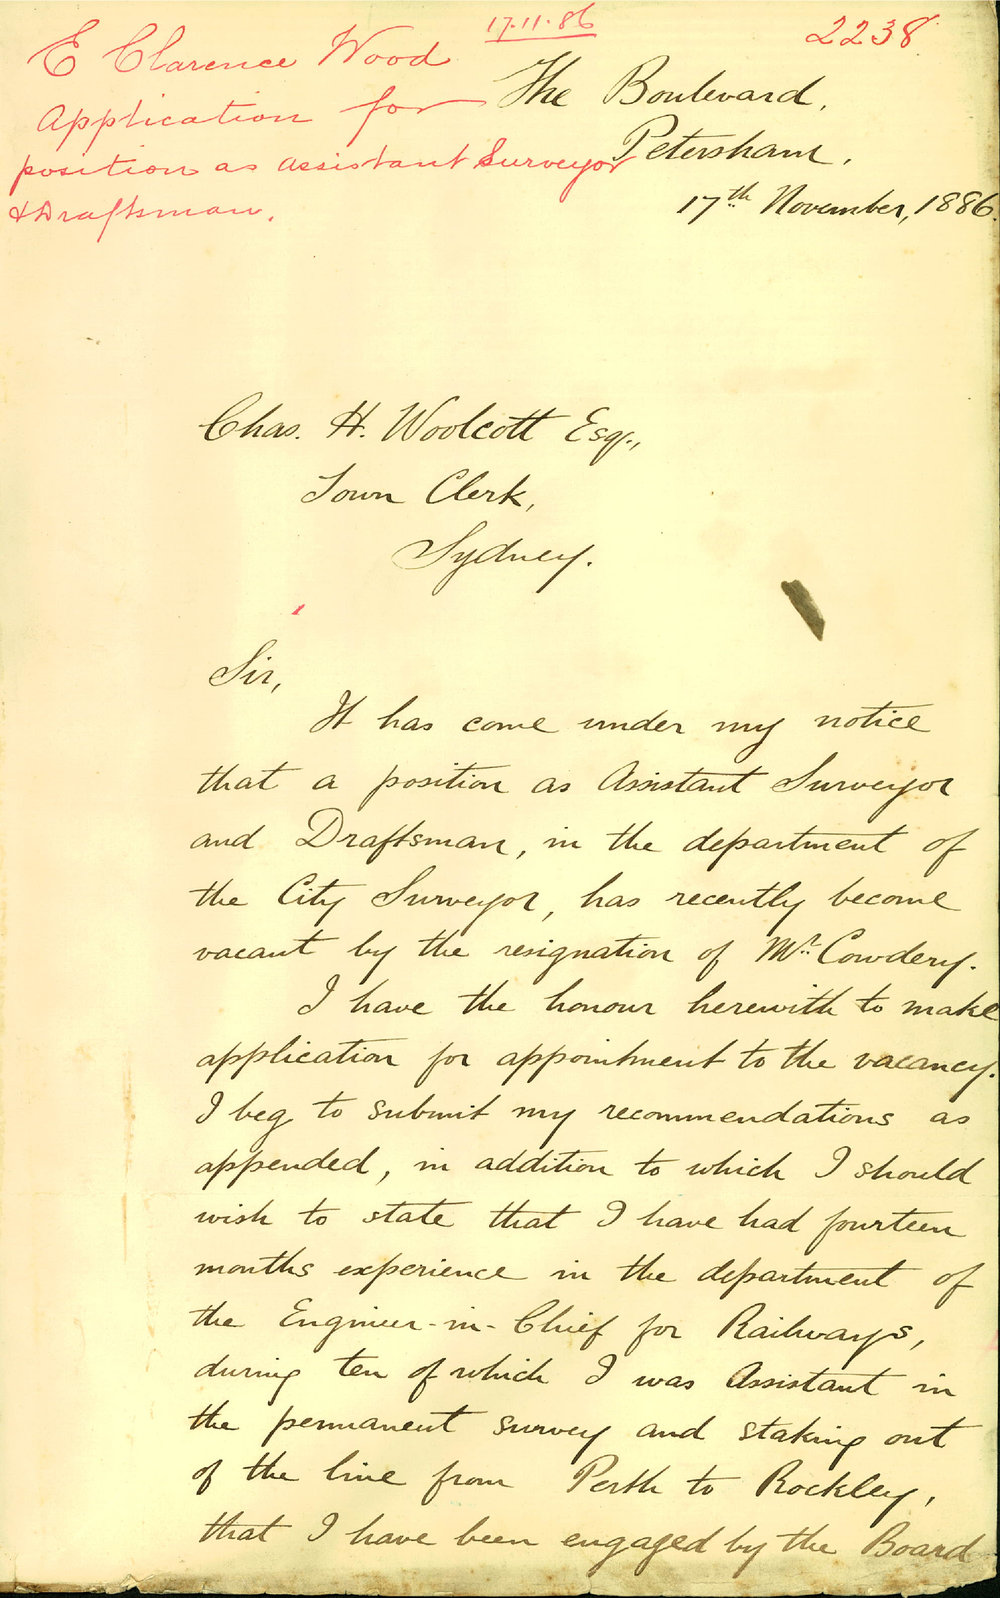 17.11.86
2238
E Clarence Wood
Application for
position as Assistant Surveyor
& Draftsman.
The Boulevard,
Petersham,
17th November, 1886.
Chas. H. Woolcott Esq.,
Town Clerk,
Sydney.
Sir,
It has come under my notice
that a position as Assistant Surveyor
and Draftsman, in the department of
the City Surveyor, has recently become
vacant by the resignation of Mr. Cowdery.
I have the honour herewith to make
application for appointment to the vacancy.
I beg to submit my recommendations as
appended, in addition to which I should
wish to state that I have had fourteen
months experience in the department of
the Engineer-in-Chief for Railways,
during ten of which I was Assistant in
the permanent survey and staking out
of the line from Perth to Rockley,
that I have been engaged by the Board